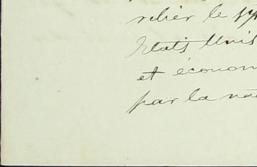 relier le
Etats Unis
et économ
par la na